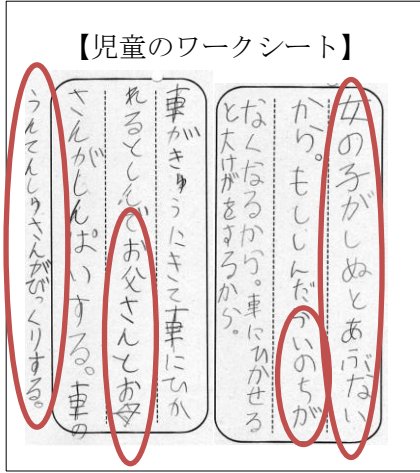 【児童のワークシート】
女の子がしぬとあぶない
から。もししんだらいのちが
なくなるから。車にひかせる
と大けがをするから。
車がきゅうにきて車にひか
れるとしんでお父さんとお母
さんがしんぱいする。車の
うんてんしゅさんがびっくりする。